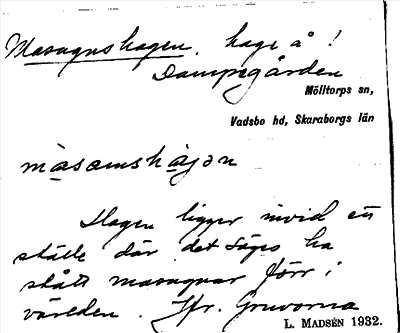 Masugnshagen. hage å!
Dampsgården
Mölltorps sn,
Vadsbo hd, Skaraborgs län
màsamshàjan
Hagen ligger invid ett
ställe där det säges ha
stått masugnar förr i
världen. Jfr. Gruvorna
L. MADSÉN 1932.